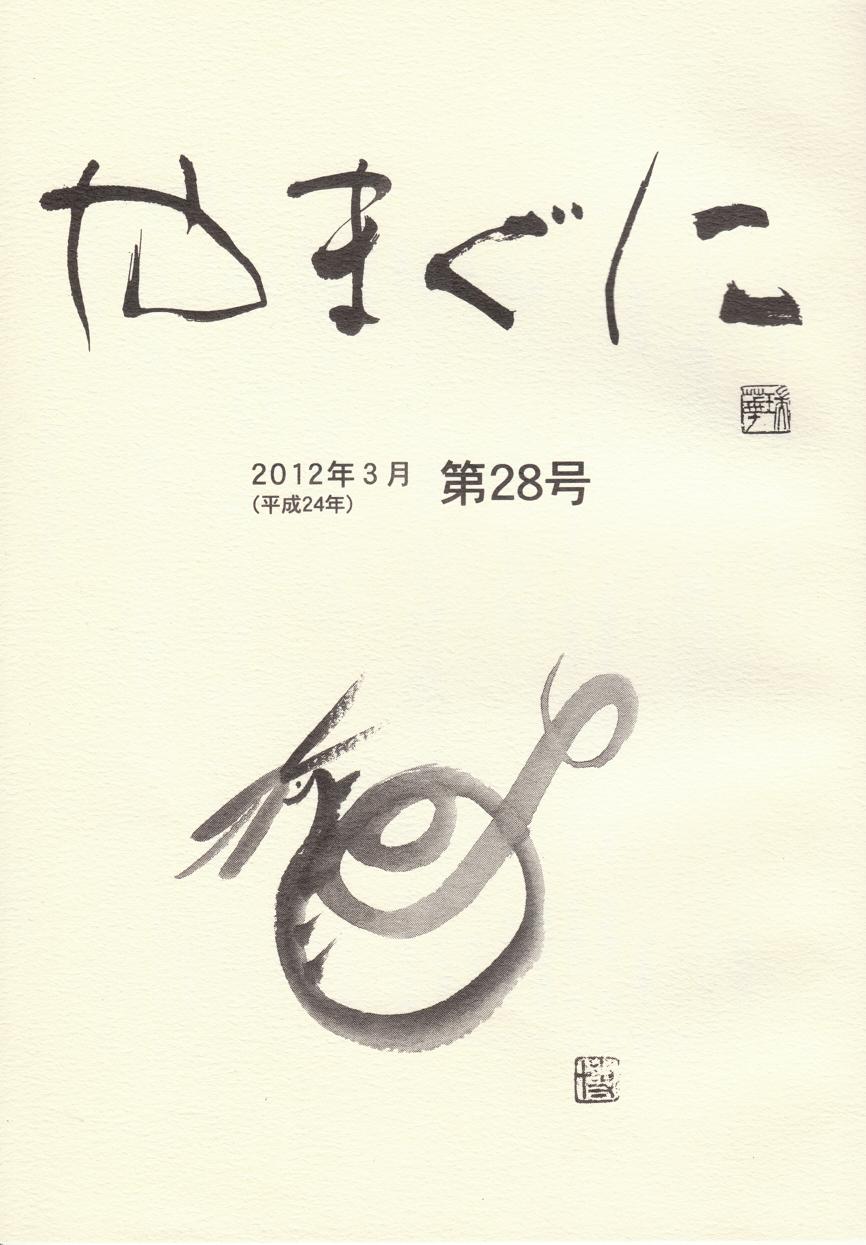 やまぐに
2012年3月 第28号
(平成24年)
博